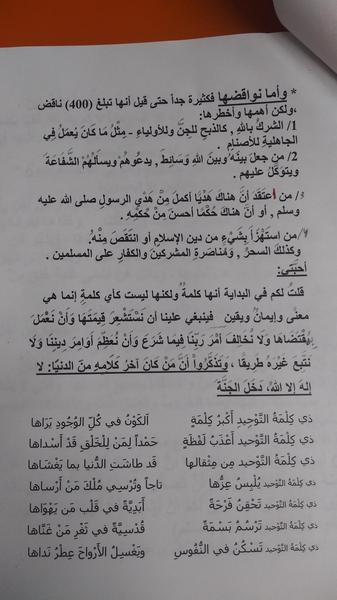 * وأما نواقضها فكثيرة جداً حتى قيل أنها تبلغ (400) ناقض
،ولكن أهمها وأخطرها:
1/ الشركُ باللهِ , كالذبحِ للجنِّ وللأولياءِ - مِثْلُ مَا كَانَ يُعمَلُ فِي
الجاهليةِ للأصنامِ .
2/ من جعلَ بينَهُ وبينَ اللهِ وَسَائِطَ , يدعُوهُمْ ويسألُهُمُ الشَّفَاعَةَ
ويتوكّلُ عليهم .
3/ من اعتَقَدَ أنَّ هناكَ هَدْيًا أكملَ مِنْ هَدْيِ الرسولِ صلى الله عليه
وسلم , أو أنّ هناكَ حُكْمًا أحسنَ مِنْ حُكْمِهِ .
4/من استَهْزَأَ بِشَيْءٍ من دينِ الإسلامِ أو انتَقَصَ مِنْهُ.
وكذلكَ السحرُ , وَمُنَاصَرَةِ المشركينَ والكفارِ على المسلمين .
أحِبَّتِي:
قلتُ لكم في البدايةِ أنها كلمةٌ ولكنها ليست كأي كلمةٍ إنما هي
معنًى وإيمانٌ ويقين فينبغي علينا أن نَسْتَشْعِرَ قِيمَتَهَا وَأَنْ نَعْمَلَ
بِمُقْتَضَاهَا وَلَا نُخَالِفَ أَمْرَ رَبِّنَا فِيمَا شَرَعَ وَأَنْ نُعَظِّمَ أَوَامِرَ دِينِنَا وَلَا
نتَّبِعَ غَيْرَهُ طريقًا , وَتَذَكَّرُوا أَنَّ مَنْ كَانَ آخرَ كَلَامِهِ مِنَ الدنيًا: لا
إلهَ إلا اللهُ, دَخَلَ الجَنَّةَ
ذي كَلِمَةُ التَّوْحِيدِ أَكْبَرُ كِلْمَةٍ الكَوْنُ في كُلِّ الوُجُودِ يَرَاهَا
ذي كَلِمَةُ التَّوْحِيدِ أَعْذَبُ لَفْظَةٍ حَمْداً لِمَنْ لِلْخَلْقِ قَدْ أَسْداها
ذي كَلِمَةُ التَّوْحِيدِ مِن مِثْقالها قد طاشت الدُّنيا بما يَغْشَاها
ذي كَلِمَةُ التَّوْحيد يُلْبِسُ عِزُّها تاجاً وتُرْسِي مُلْكَ مَنْ أَرْساها
ذي كَلِمَةُ التَّوْحيد تَحْقِنُ فَرْحَةً أَبَدِيَّةً في قَلْب مَن يَهْوَاها
ذي كَلِمَةُ التَّوْحيد تَرْسُمُ بَسْمَةً قُدْسِيَّةً في ثَغْرِ مَن غَنَّاها
ذي كَلِمَةُ التَّوْحيد تَسْكُنُ في النُّفُوس ويَغْسِلُ الأَرواحَ عِطْرُ نَداها